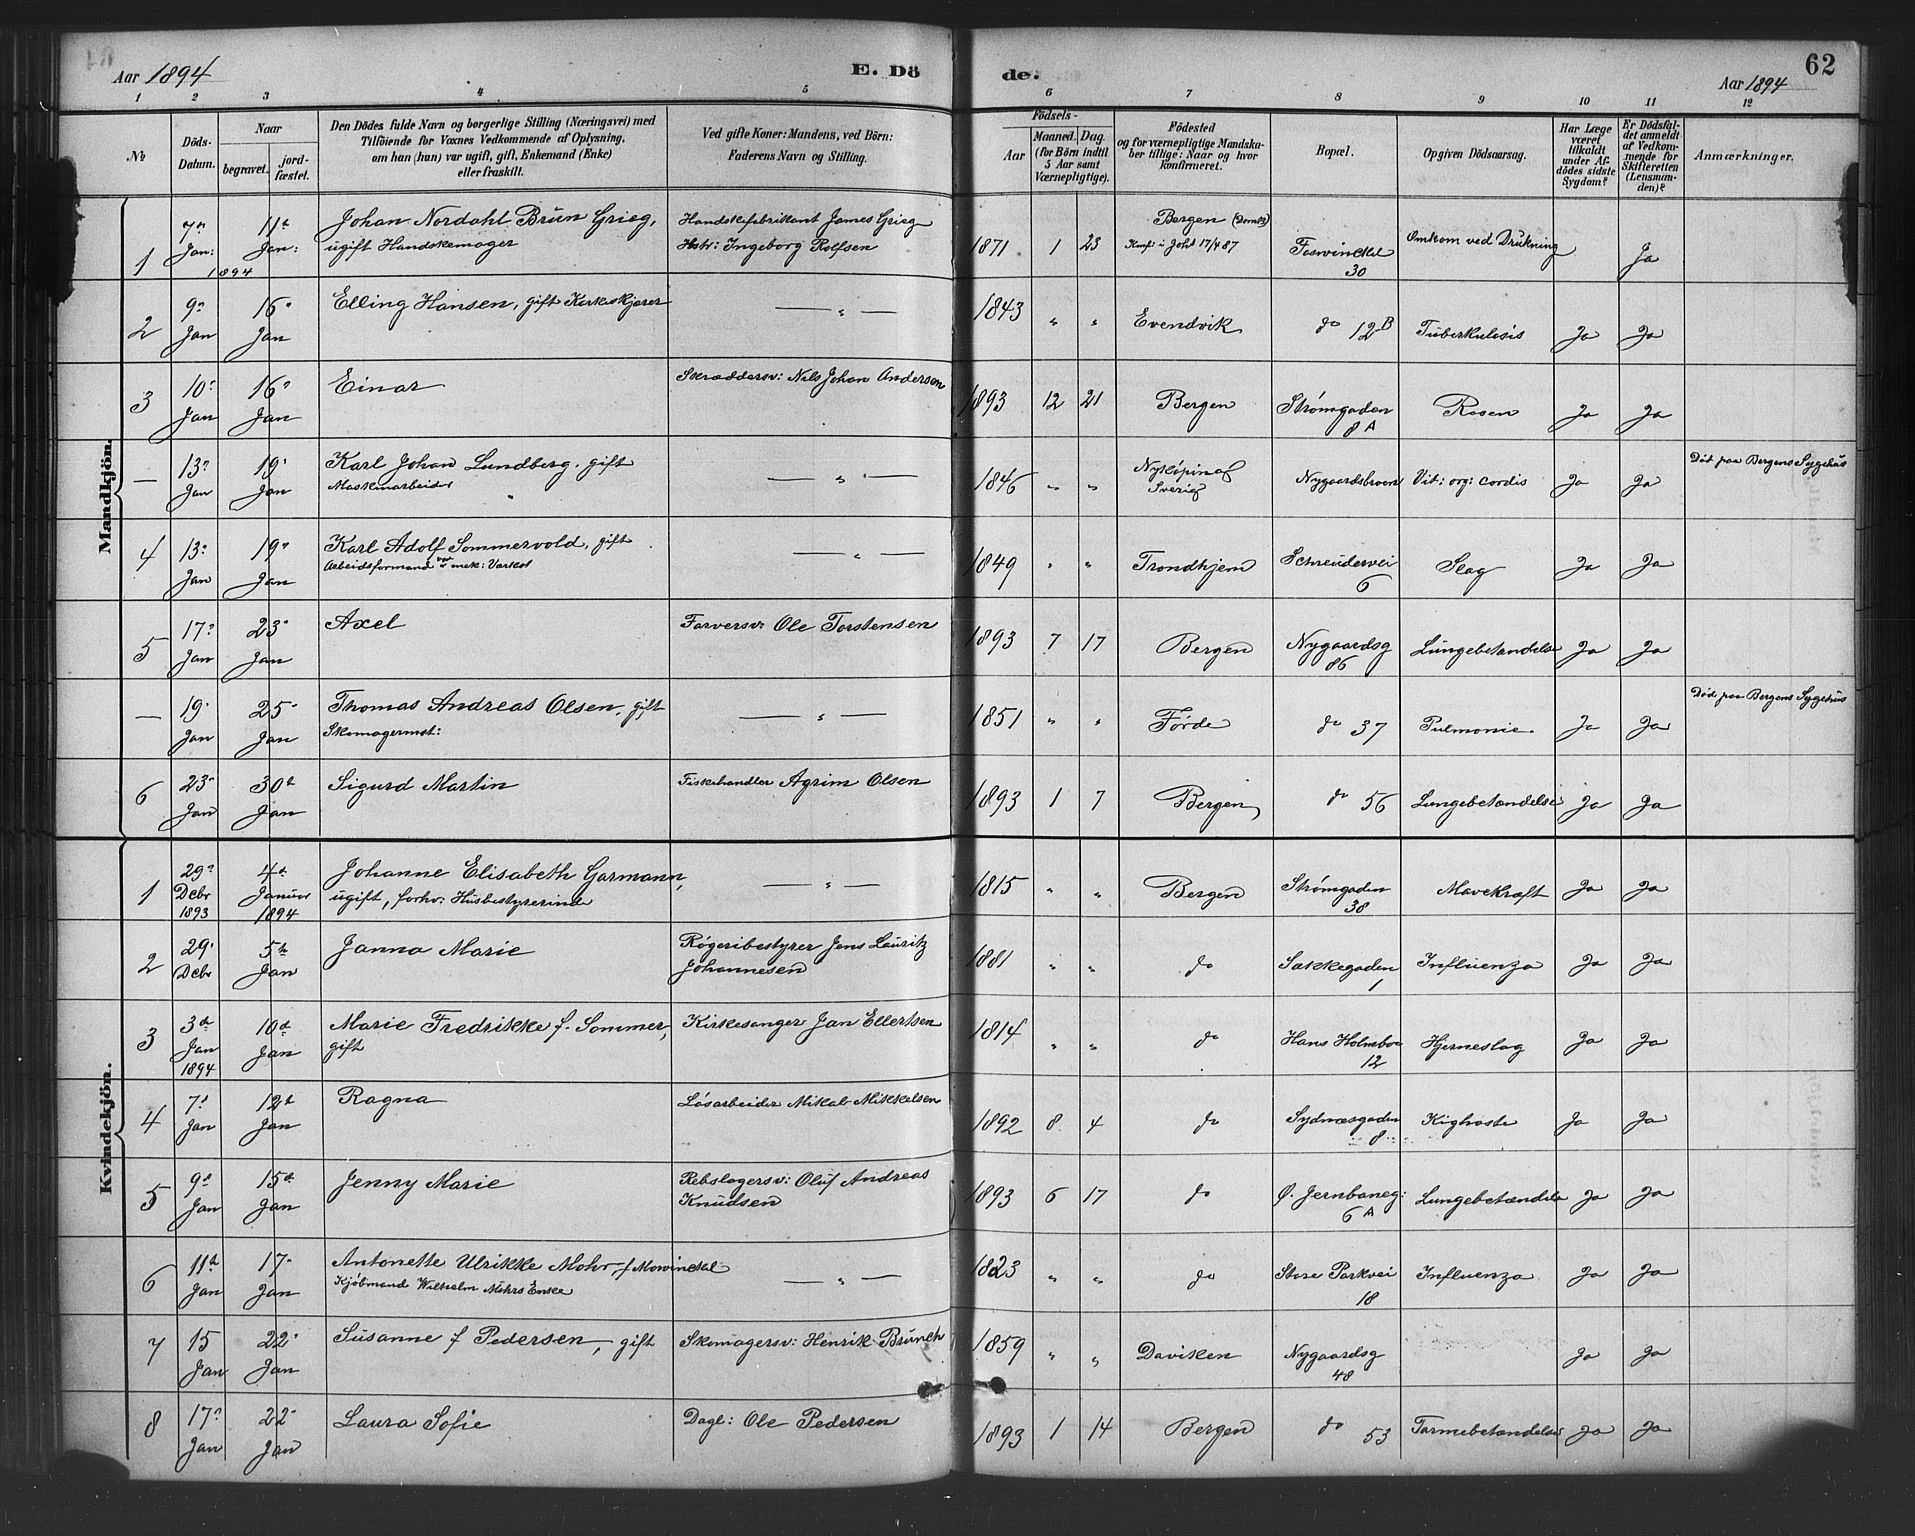 Aar 1894
E. Dö
de.
62
Aar 1894
1 2 3 4 5 6 7 8 9 10 11 12
No
Döds-
Datum.
Naar
begravet.
jord-
fæstet.
Den Dödes fulde Navn og borgerlige Stilling (Næringsvei) med
Tilföiende for Voxnes Vedkommende af Oplysning,
om han (hun) var ugift, gift, Enkemand (Enke)
eller fraskilt.
Ved gifte Koner: Mandens, ved Börn:
Faderens Navn og Stilling.
Födsels-
Aar
Maaned. Dag.
(for Börn indtil
5 Aar samt
Værnepligtige).
Födested
og for værnepligtige Mandska-
ber tillige: Naar og hvor
konfirmeret.
Bopæl.
Opgiven Dödsaarsag.
Har Læge
været
tilkaldt
under Af-
dödes sidste
Sygdom?
Er Dödsfal-
det anmeldt
af Vedkom-
mende for
Skifteretten
(Lensman-
den)?
Anmærkninger.
Mandkjön.
1 7de Jan: 1894 11te Jan: Johan Nordahl Brun Grieg, Handskefabrikant James Grieg 1871 1 23 Bergen Omkom ved Drukning Ja
ugift Handskemager Hstr: Ingeborg Rolfsen Konf: i Joht 17/4 87 Foswinckel
30
2 9de Jan 16de Jan Elling Hansen, gift Kirkeskjærer — " — 1843 " " Evendvik do 12B Tuberkulosis Ja Ja
3 10de Jan 16de Jan Einar Skræddersv: Nils Johan Andersen 1893 12 21 Bergen Strømgaden Rosen Ja Ja
8 A
— 13de Jan 19de Jan Karl Johan Lundberg, gift — " — 1846 " " Nykøping Nygaardsbroen Vit: org: cordis Ja Ja Död paa Bergens Sygehus
Maskinarbeider Sverig
4 13de Jan 19de Jan Karl Adolf Sommervold, gift — " — 1849 " " Trondhjem Schreudervei Slag Ja Ja
Arbeidsformand ved mek: Værkst 6
5 17de Jan 23de Jan Axel Farversv: Ole Torstensen 1893 7 17 Bergen Nygaardsg Lungebetændelse Ja Ja
86
— 19de Jan 25de Jan Thomas Andreas Olsen, gift — " — 1851 " " Førde do 37 Pulmonie. Ja Ja Död paa Bergens Sygehus
Skomagermst:
6 23de Jan 30te Jan Sigurd Martin Fiskehandler Agrim Olsen 1893 1 7 Bergen do 56 Lungebetændelse Ja Ja
Kvindekjön.
1 29de Debr 1893 4de Januar 1894 Johanne Elisabeth Garmann, — " — 1815 " " Bergen Strømgaden Mavekræft Ja Ja
ugift, forhv: Husbestyrerinde 38
2 29de Debr 5te Jan Janna Marie Røgeribestyrer Jens Lauritz 1881 " " do Sækkegaden Influenza Ja Ja
Johannesen 1
3 3de Jan 1894 10de Jan Marie Fredrikke f. Sommer, Kirkesanger Jan Ellertsen 1814 " " do Hans Holmboe Hjerneslag Ja Ja
gift 12
4 7de Jan 12te Jan Ragna Løsarbeider Mikal Mikkelsen 1892 8 4 do Sydnæsgaden Kighoste Ja Ja
8
5 9de Jan 15de Jan Jenny Marie Rebslagersv: Oluf Andreas 1893 6 17 do Ø. Jernbaneg: Lungebetændelse Ja Ja
Knudsen 6 A
6 11te Jan 17de Jan Antonette Ulrikke Mohr, f Mowinckel — " — 1823 " " do Store Parkvei Influenza Ja Ja
Kjøbmand Wilhelm Mohrs Enke 18
7 15 Jan 22de Jan Susanne f Pedersen, gift Skomagersv: Henrik Brunch 1859 " " Daviken Nygaardsg Ja Ja
48
8 17de Jan 22de Jan Laura Sofie Dagl: Ole Pedersen 1893 1 14 Bergen do 53 Tarmebetændelse Ja Ja